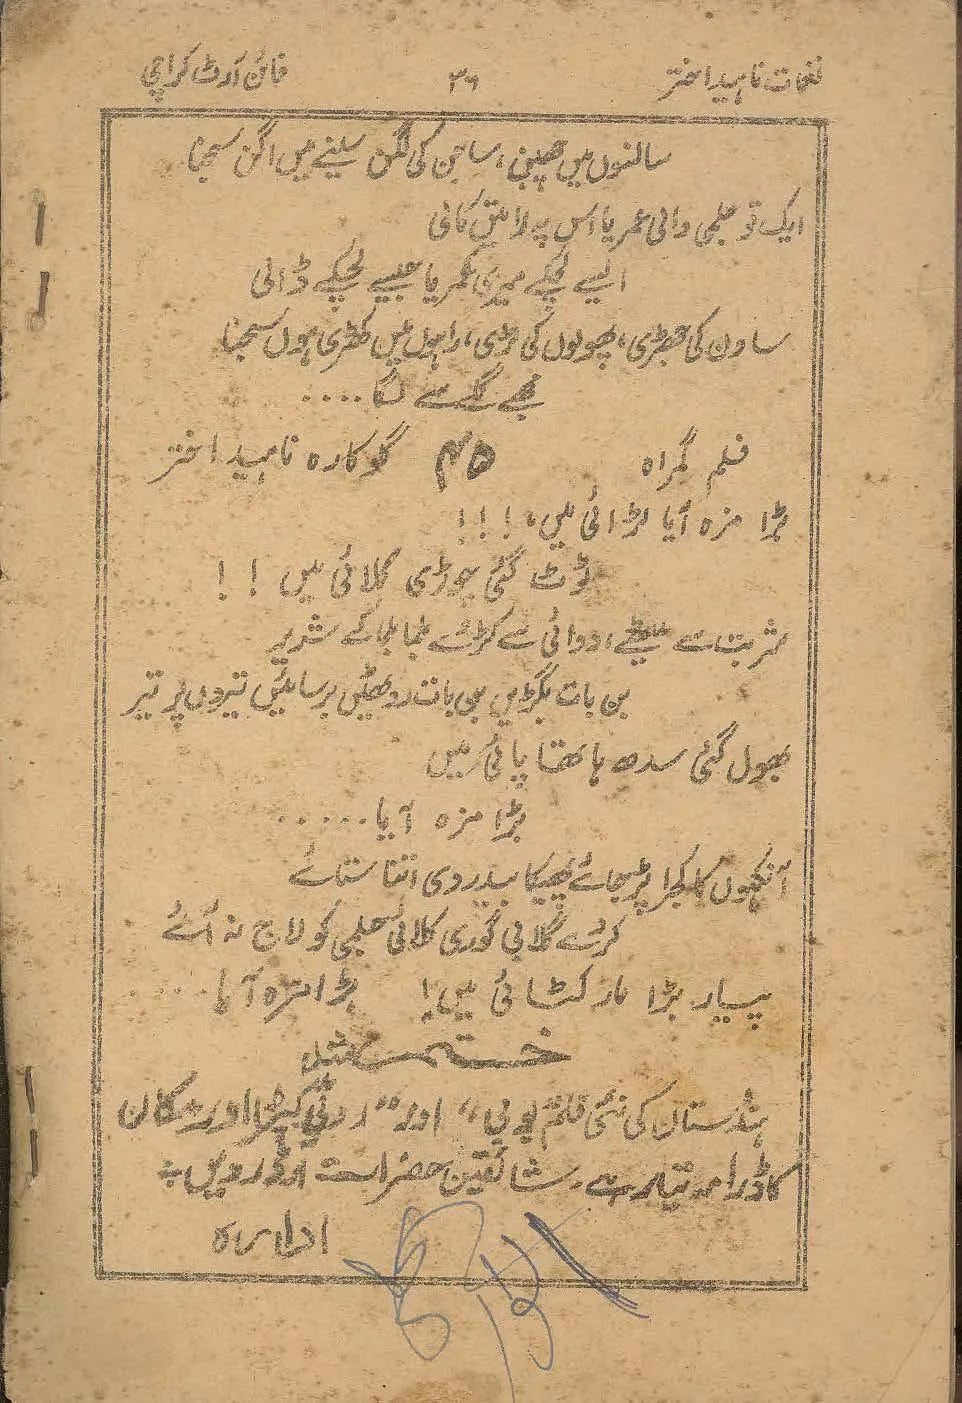 نغمات ناہید اختر ۳۶ فائن آرٹ کراچی
سانسوں میں چھپن، ساجن کی لگن سینے میں اگن سجنا
ایک تو ظلمی والی عمریا اس پہ رائیں کالی
ایسے لچکے میری کمریا جیسے لچکے ڈالی
ساون کی جھڑی، پھولوں کی لڑی، راہوں میں کھڑی ہوں سجنا
مجھے گلے سے لگا ....
فلم گمراہ ۴۵ گلوکارہ ناہید اختر
بڑا مزہ آیا لڑائی میں، !!!
ٹوٹ گئی چوڑی کلائی میں !!
شربت سے میٹھے، دوائی سے کڑوے
بن بات بگڑیں بی بات روٹھیں برسائیں تیروں پر تیر
بھول گئی سدھ ہاتھا پائی میں
بڑا مزہ آیا .....
آنکھوں کا کجرا پڑ جائے پھیکا بیدردی اتنا ستائے
کرے گلابی گوری کلائی ظلمی کو لاج نہ آئے
پیار بڑا مار کٹائی میں! بڑا مزہ آیا ....
ختم شد
ہندستان کی نئی فلم بوبی،، اور ،،روٹی کپڑا اور مکان
کا ڈرامہ تیار ہے۔ شائقین حضرات آرڈر دیں
ادارہ